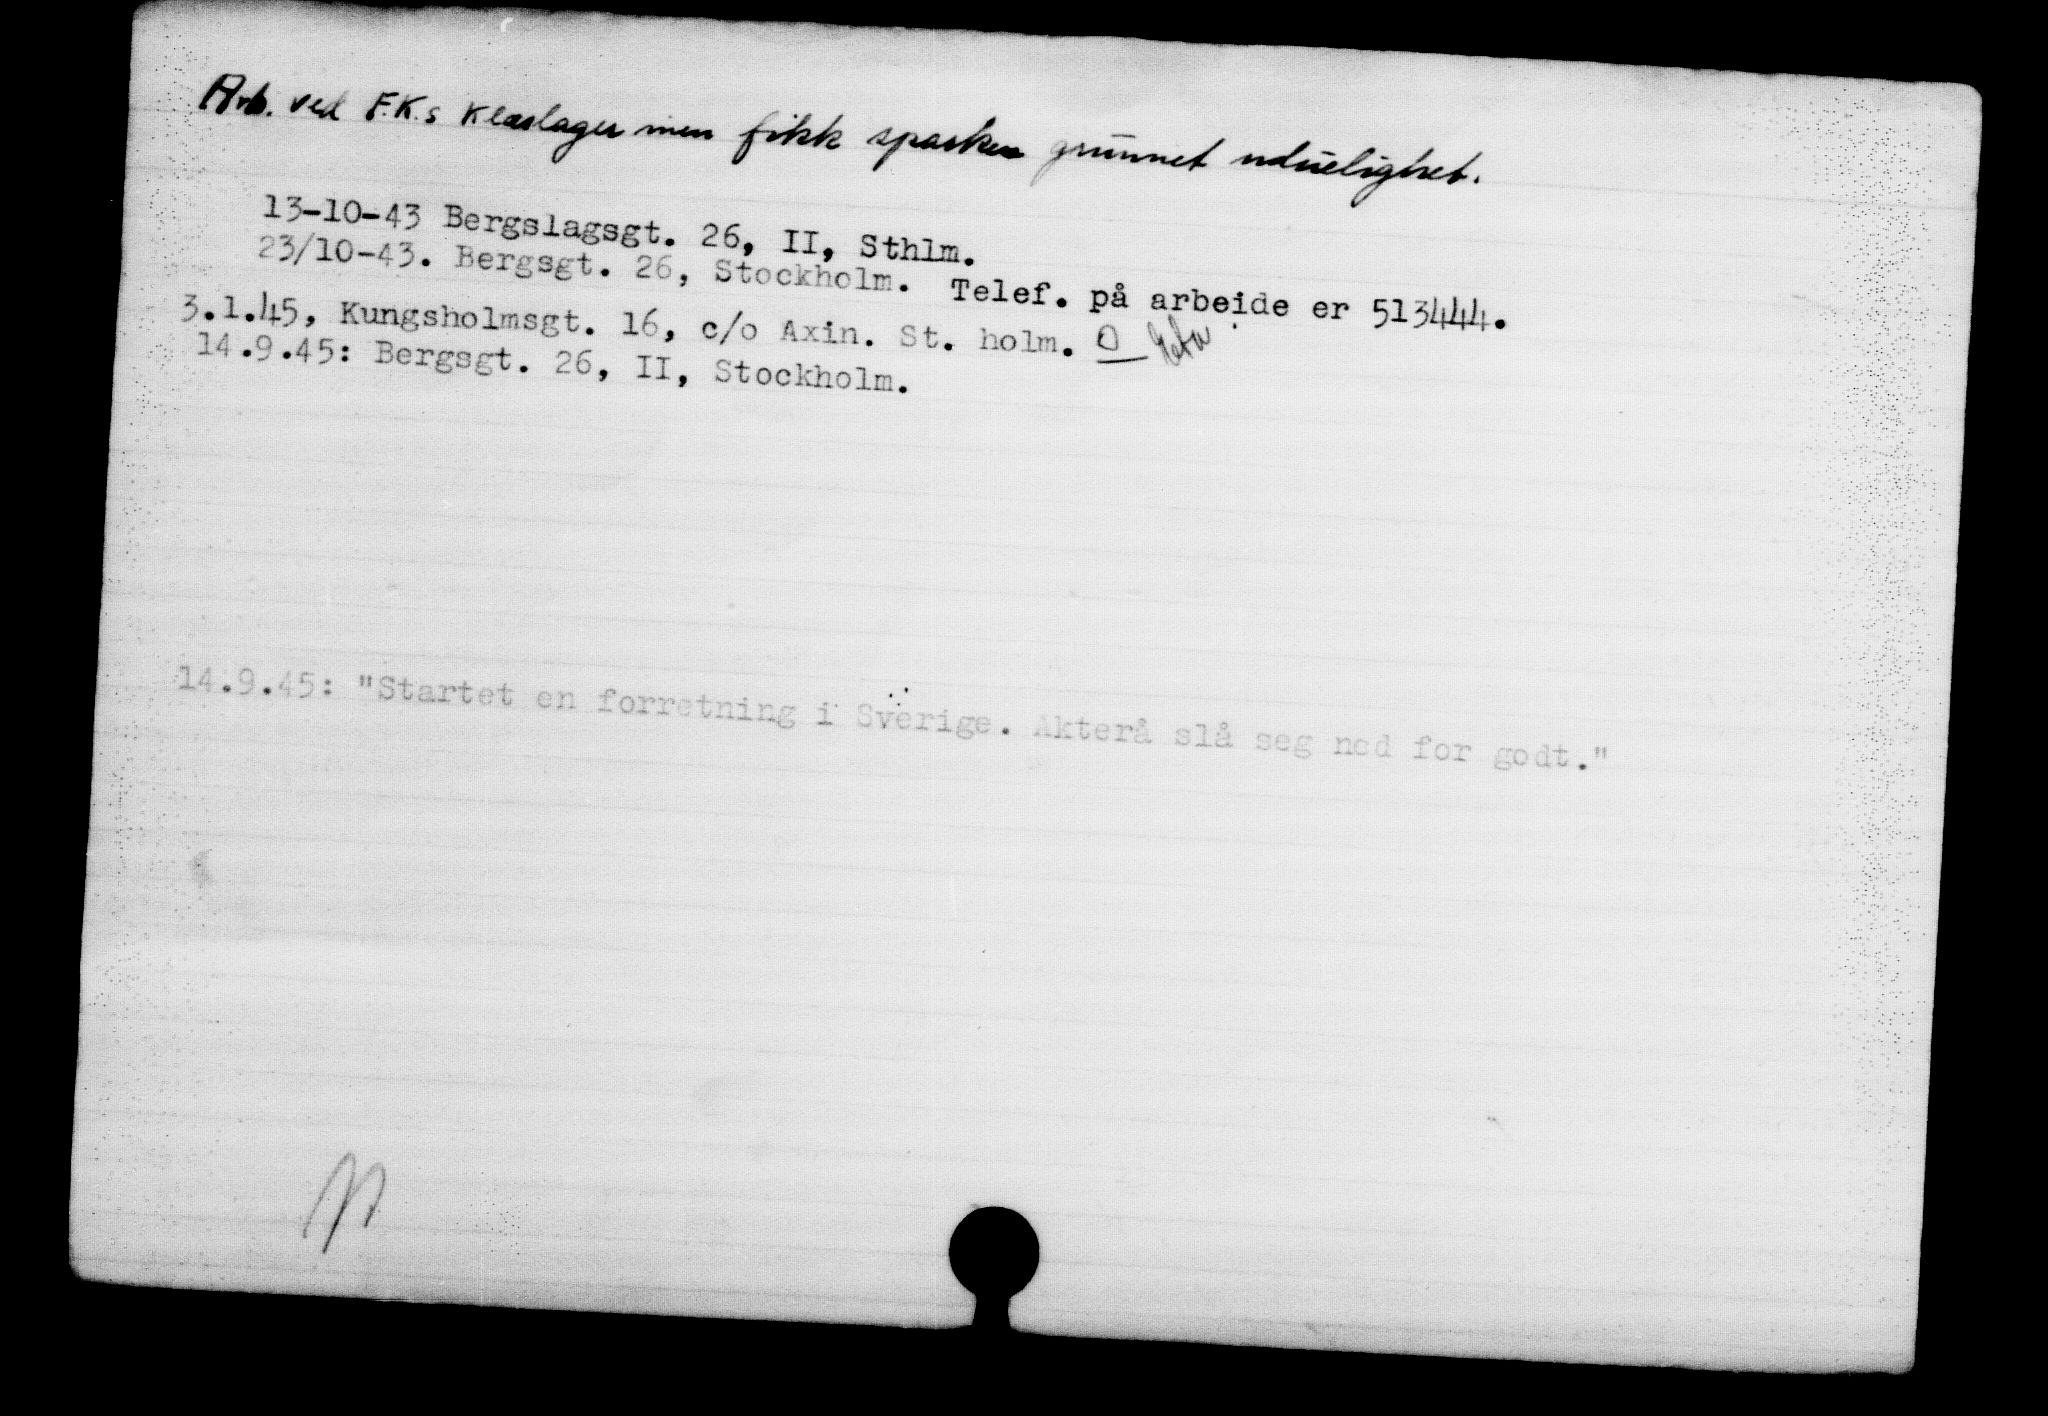 Arb. ved F.K.s Klæslager men fikk sparken grunnet uduelighet.
13-10-43 Bergslagsgt. 26, II, Sthlm.
23/10-43. Bergsgt. 26, Stockholm. Telef. på arbeide er 513444.
3.1.45, Kungsholmsgt. 16, c/o Axin. St. holm. O
14.9.45: Bergsgt. 26, II, Stockholm.
14.9.45: "Startet en forretning i Sverige. Akterå slå seg ned for godt."